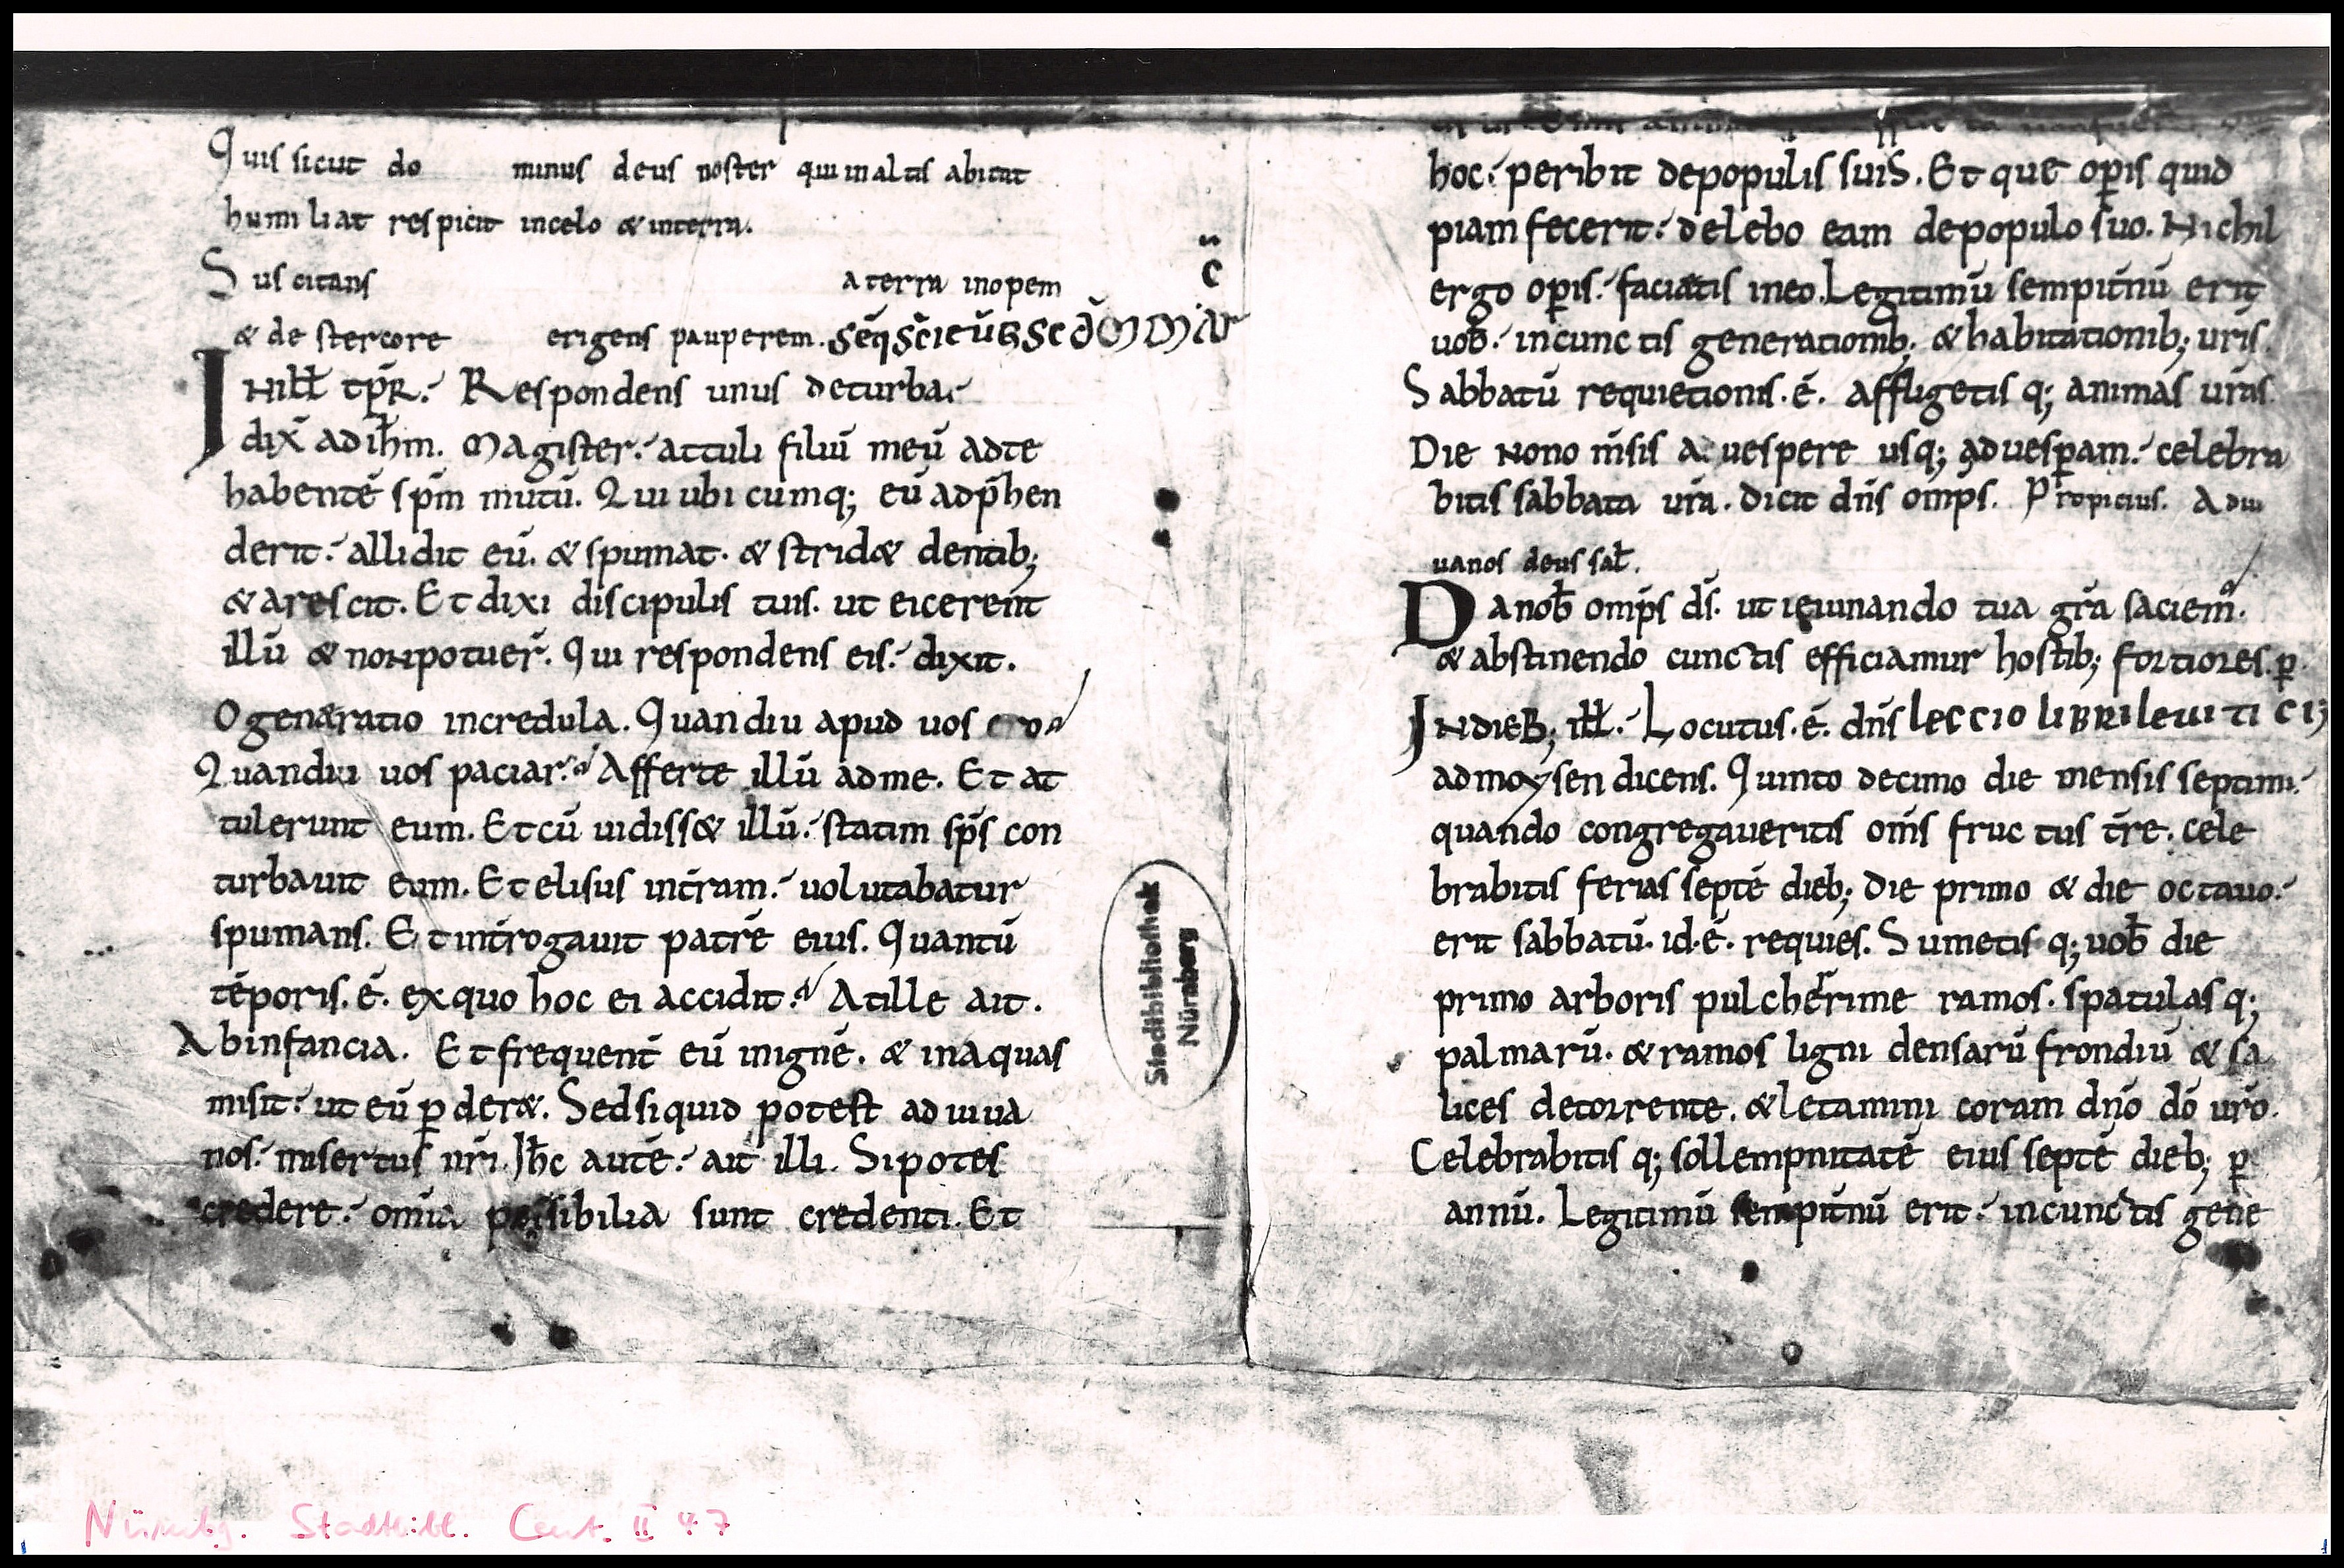 Quis sicut do minus deus noster qui in altis abitat
humi liat respicit in celo & in terra.
Sus citans a terra inopem
& de stercore erigens pauperem. Seq̄ S̄ci eūg Scd̄m Mar
c̄
IN ill̄ tp̄r. Respondens unus de turba.
dix̄ ad ih̄m. Magister. attuli filiū meū ad te
habentē sp̄m mutū. Qui ubi cumq; eū adp̄hen
derit. allidit eū. & spumat. & strid& dentib;
& arescit. Et dixi discipulis tuis. ut eicerent
illū & non potuer̄. Qui respondens eis. dixit.
O generatio incredula. Quan diu apud uos ero
Quandiu uos paciar. Afferte illū ad me. Et at
tulerunt eum. Et cū uidiss& illū. statim sp̄s con
turbauit eum. Et elisus in t̄ram. uolutabatur
spumans. Et int̄rogauit patrē eius. Quantū
tēporis.ē. ex quo hoc ei accidit. At ille ait.
Ab infancia. Et frequent̄ eū in ignē. & in aquas
misit. ut eū ꝑder&. Sed si quid potest adiuua
nos. misertus nr̄i. Ih̄c autē. ait illi. Si potes
credere. om̄ia possibilia sunt credenti. Et
hoc. peribit de populis suis. Et que oꝑis quid
piam fecerit. delebo eam de populo suo. Nichil
ergo oꝑis. faciatis in eo. Legitimū sempit̄nū erit
uob̄. in cunctis generationib; & habitationib; ur̄is.
Sabbatū requietionis.ē. affligetis q; animas ur̄as.
Die nono m̄sis a uespere usq; ad uesꝑam. celebra
bitis sabbata ur̄a. dicit dn̄s omp̄s. Propicius. Adiu
uanos deus sal̄.
Da nob̄ omp̄s ds̄. ut ieiunando tua gr̄a saciem̄.
& abstinendo cunctis efficiamur hostib; fortiores. ꝑ
IN dieb; ill̄. Locutus.ē. dn̄s Leccio libri leuitici
ad moysen dicens. Quinto decimo die mensis septimi.
quando congregaueritis om̄s fructus t̄re. cele
brabitis ferias septē dieb; die primo & die octauo.
erit sabbatū. id.ē. requies. Sumetis q; uob̄ die
primo arboris pulcherrime ramos. spatulas q;
palmarū. & ramos ligni densarū frondiū & sa
lices de torrente. & letamini coram dn̄o dō ur̄o.
Celebrabitis q; sollempnitatē eius septē dieb; ꝑ
annū. Legitimū sempit̄nū erit. in cunctis gene
Stadtbibliothek
Nürnberg
Nürnbg. Stadtbibl. Cent. II 47